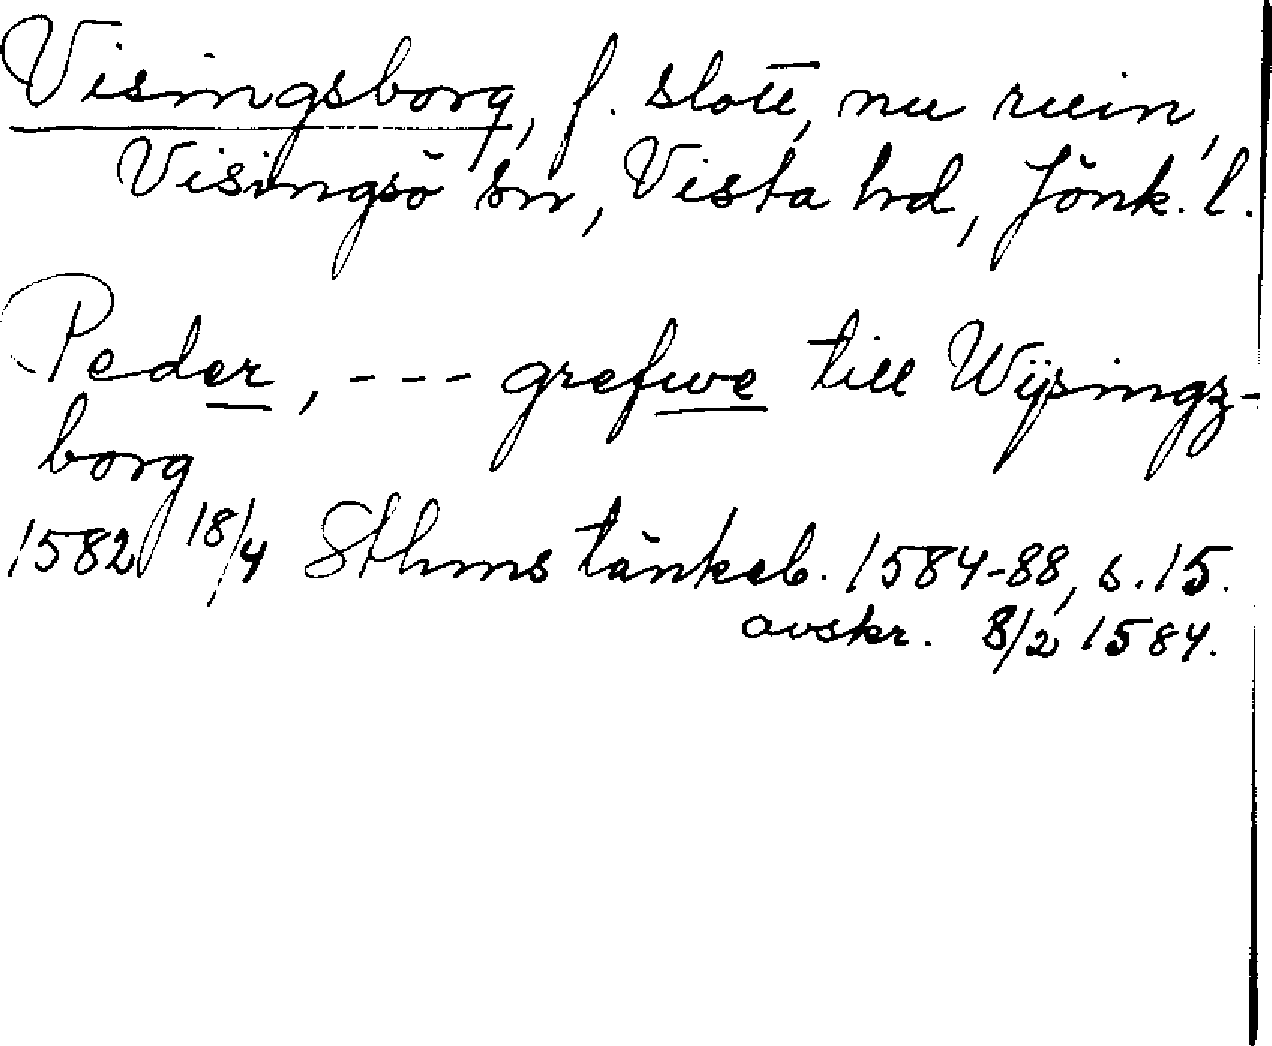 Visingsborg, f. slott, nu ruin,
Visingsö sn, Vista hd, Jönk. l.
Peder, --- grefwe till Wijsingz-
borg
1582 18/4 Sthms tänkeb. 1584-88, s. 15.
avskr. 8/2 1584.